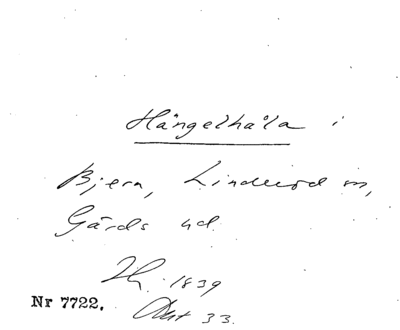 Hängelhåla i
Bjern, Linderöd sn,
Gärds hd
1839
Nr 7722. 33.